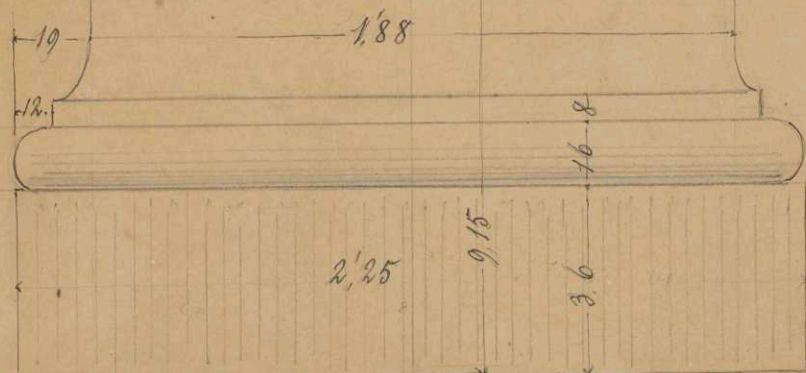 19
1,'88
12.
8
16
9,15
2,'25
3.6